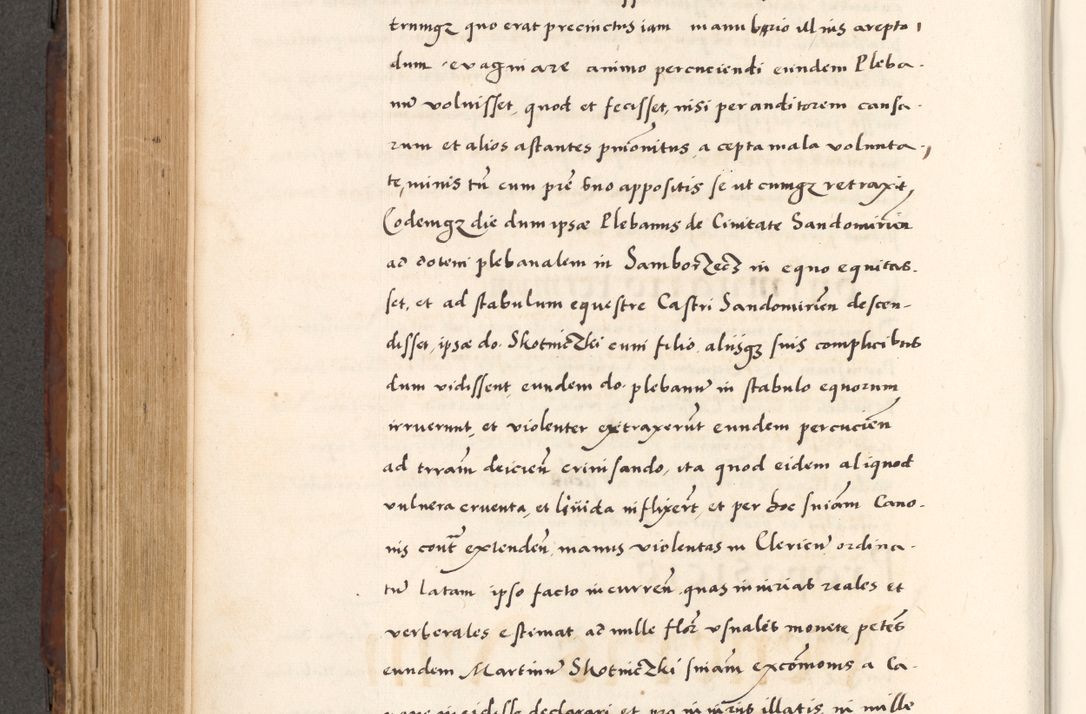 trumqz quo erat precinctus iam manubrio illius arepto
dum evaginare animo percuciendi eundem Pleba-
nu voluisset, quod et fecisset, nisi per auditorem causa-
rum et alios astantes pmonitus, a cepta mala volunta-
te, minis tn cum pre uno appositis se ut cumqz retraxit,
Eodemqz die dum ipse Plebanus de Civitate Sandomirien
ad dotem plebanalem in Samborzecz in equo equitas-
set, et ad stabulum equestre Castri Sandomirien descen-
disset, ipse do. Skotniczki cum filio, aliisqz suis complicibus
dum vidissent, eundem do. plebanu in stabulo equorum
irruerunt, et violenter extraxerut eundem percucien
ad terram deicien crinisando, ita quod eidem aliquod
vulnera cruenta, et livida inflixert, et per hoc sniam Cano-
nis cont extenden, manus violentas in Clericu ordina-
tu latam ipso facto incurren, quas iniurias reales et
verberales estimat, ad mille flor usuales monete petens
eundem Martinu Skotniczki sniam excomonis a Ca-
declarari et pro iniuriis illatis, in mille